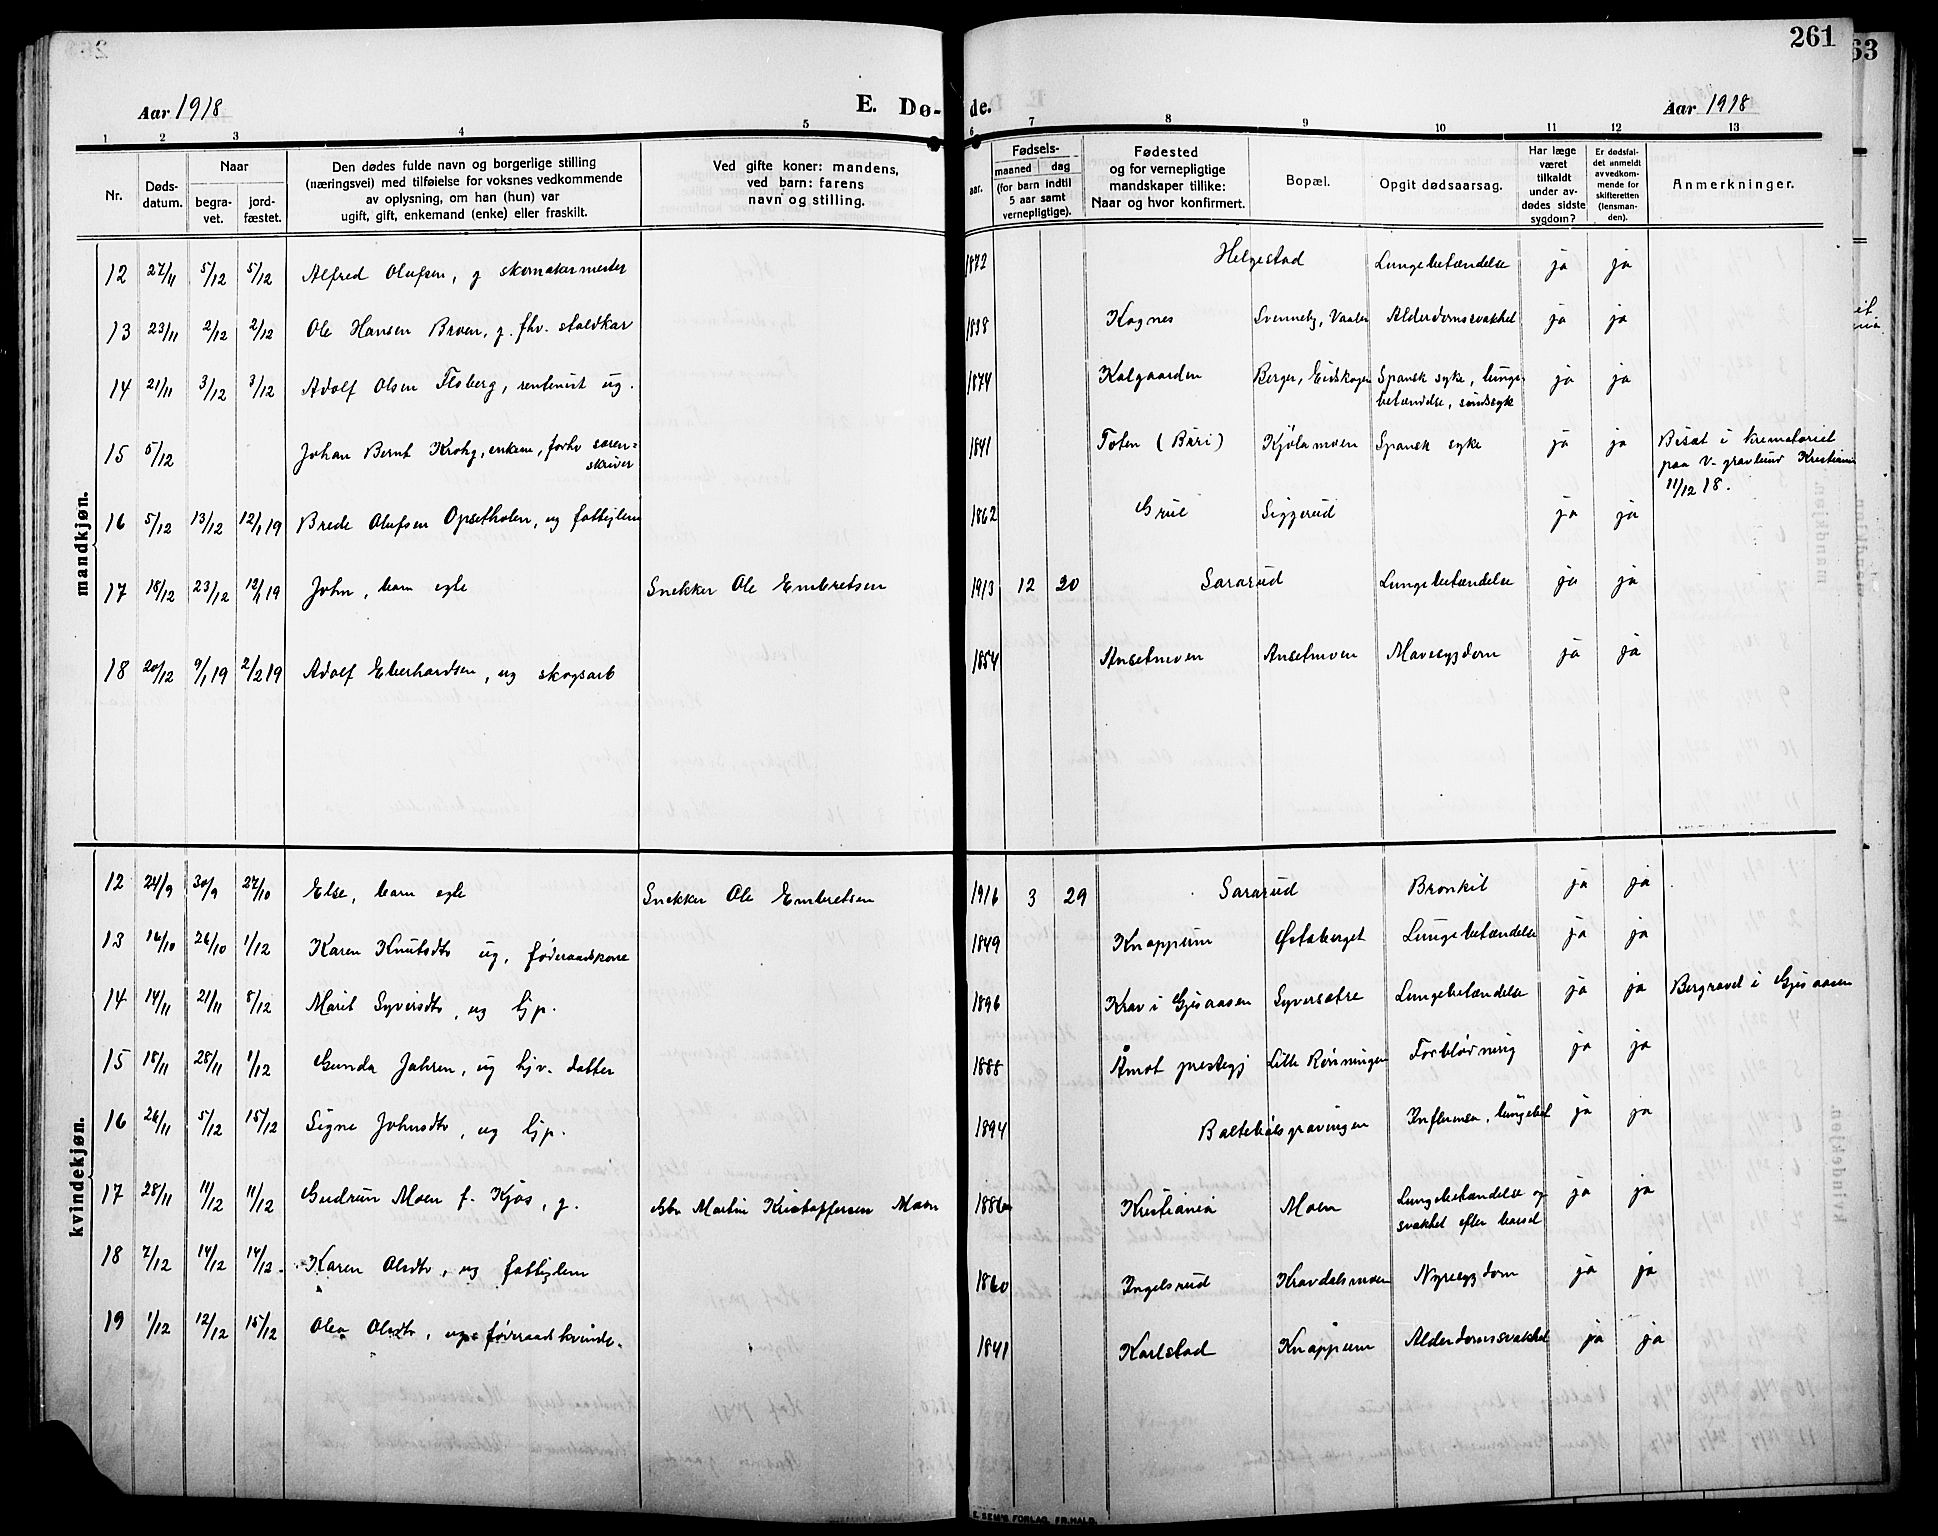 261
63
Aar 1918
E. Dø-
de.
Aar 1918
1 2 3 4 5 6 7 8 9 10 11 12 13
Nr.
Døds-
datum.
Naar
begra-
vet.
jord-
fæstet.
Den dødes fulde navn og borgerlige stilling
(næringsvei) med tilføielse for voksnes vedkommende
av oplysning, om han (hun) var
ugift, gift, enkemand (enke) eller fraskilt.
Ved gifte koner: mandens,
ved barn: farens
navn og stilling.
aar.
Fødsels-
maaned dag
(for barn indtil
5 aar samt
vernepligtige).
Fødested
og for vernepligtige
mandskaper tillike:
Naar og hvor konfirmert.
Bopæl.
Opgit dødsaarsag.
Har læge
været
tilkaldt
under av-
dødes sidste
sygdom?
Er dødsfal-
det anmeldt
av vedkom-
mende for
skifteretten
(lensman-
den).
Anmerkninger.
mandkjøn.
12 27/11 5/12 5/12 Alfred Olufsen, g skomakermester 1872 Helgestad Lungebetændelse ja ja
13 23/11 2/12 2/12 Ole Hansen Broen, g. fhv. staldkar 1838 Kognes Svenneby, Vaaler Alderdomssvakhet ja ja
14 21/11 3/12 3/12 Adolf Olsen Flsberg, rentenist ug. 1874 Kolgaarden Berger, Eidskogen Spansk syke, lunge-
betændelse, sindssyk ja ja
15 5/12 Johan Bernt Krohg, enkem, forhv soren=
skriver 1841 Toten (Buri) Kjølamoen Spansk syke ja ja Bisat i krematoriet
paa V. gravlund Kristiania
11/12 18.
16 5/12 13/12 12/1 19 Brede Olufsen Opsetholen, ug fattiglem 1862 Grue Siggerud ja ja
17 18/12 23/12 12/1 19 John, barn egte Snekker Ole Embretsen 1913 12 20 Sararud Lungebetændelse ja ja
18 20/12 9/1 19 2/2 19 Adolf Eberhardsen, ug skogsarb 1854 Ansetmoen Ansetmoen Mavesygdom ja ja
kvindekjøn.
12 24/9 30/9 27/10 Else, barn egte Snekker Ole Embretsen 1916 3 29 Sararud Bronkit ja ja
13 16/10 26/10 1/12 Karen Knutsdtr ug, føderaadskone 1849 Knapperm Østaberget Lungebetændelse ja ja
14 14/11 21/11 8/12 Marit Syversdtr, ug tjp. 1896 Krav i Gjesaasen Syversætre Lungebetændelse ja ja Bergravet i Gjesaasen
15 18/11 28/11 1/12 Gunda Jahren, ug hjv. datter 1888 Åmot prestegj Lille Rønningen Forblødning ja ja
16 26/11 5/12 15/12 Signe Johnsdtr, ug tjp. 1894 Baltebølsgravingen Influensa, lungebet ja ja
17 28/11 11/12 11/12 Gudrun Moen f. Kjos, g. Gbr Martin Kristoffersen Moen 1886 Kristiania Moen Lungebetændelse og
svakhet efter barsel ja ja
18 7/12 14/12 14/12 Karen Olsdtr, ug fattiglem 1860 Ingelsrud Kravdalsmoen Nyresygdom ja ja
19 1/12 12/12 15/12 Olea Olsdtr, ug føderaadskvinde. 1841 Karlstad Knapperm Alderdomssvakhet ja ja
E. SEM'S FORLAG, FR.HALD.